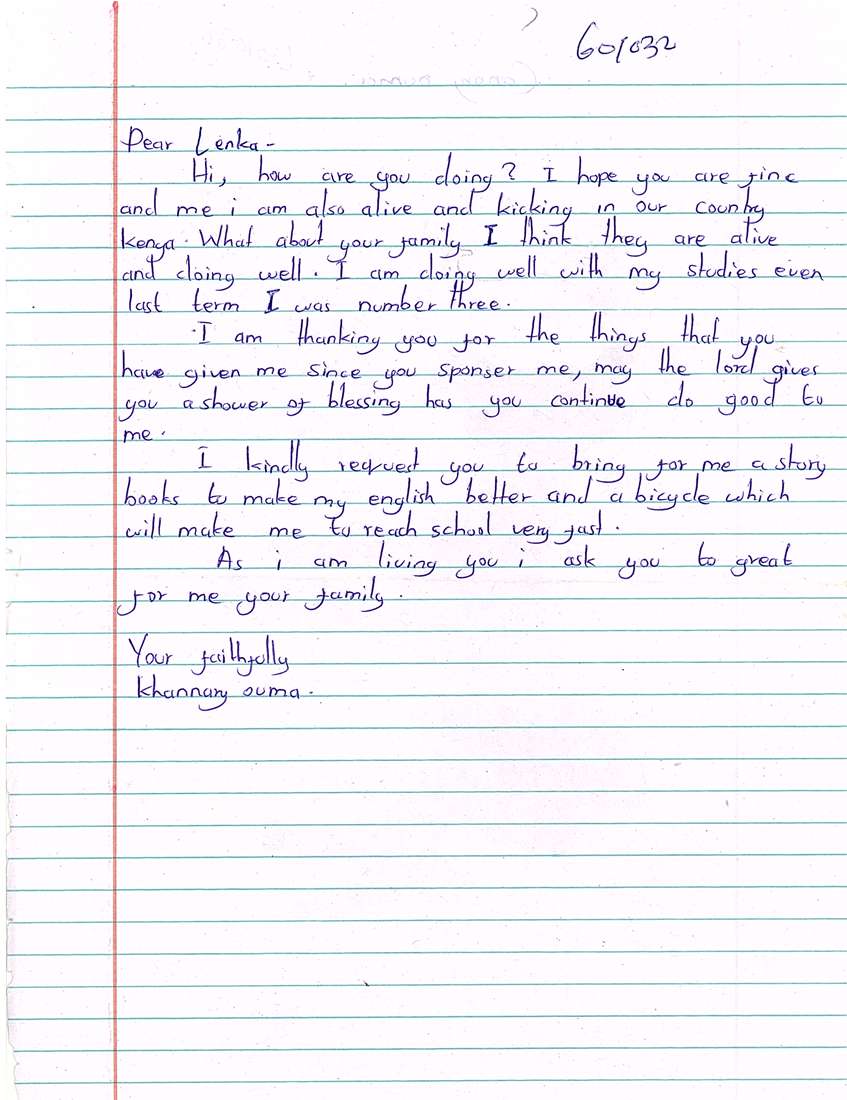 601032
Dear Lenka-
Hi, how are you doing? I hope you are fine
and me i am also alive and kicking in our country
kenya. What about your family I think they are alive
and doing well. I am doing well with my studies even
last term I was number three.
I am thanking you for the things that you
have given me since you sponser me, may the lord gives
you a shower of blessing has you continue do good to
me.
I kindly request you to bring for me a story
books to make my english better and a bicycle which
will make me to reach school very fast.
As i am living you i ask you to great
for me your family.
Your faithfully
khannary ouma.